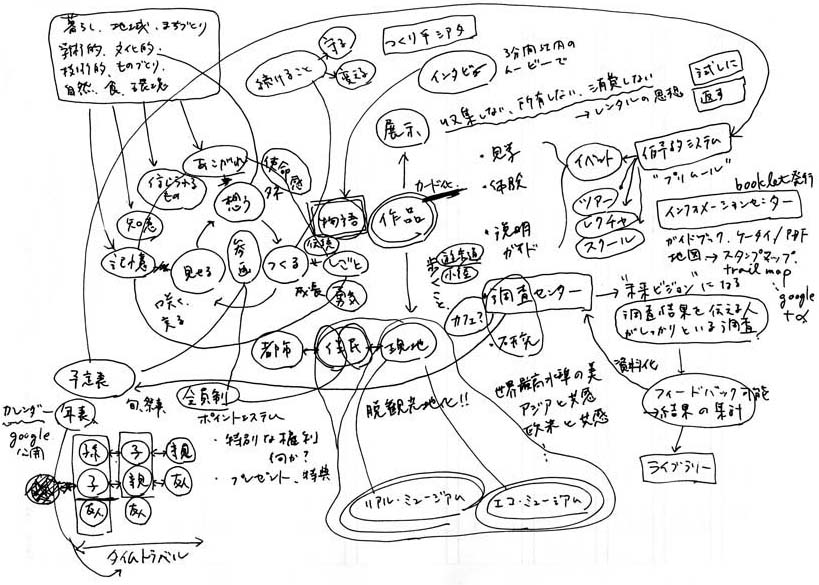 暮らし、地域、まちづくり
学術的、文化的、
技術的、ものづくり、
自然、食、環境
続けること
守る
変える
つくり手シアター
インタビュー
3分間以内の
ムービーで
収集しない、所有しない、消費しない
→レンタルの思想
試しに
返す
展示
カード化
作品
物語
・見学
・体験
・説明
ガイド
イベント
ツアー
レクチャー
スクール
信号的システム
"プリムール"
booklet発行
インフォメーションセンター
ガイドブック、ケータイ/PDF
地図→スタンプマップ、
trail map
google
+α
あこがれ
使命感
信じられるもの
知恵
記憶
想う
見せる
参画
つくる
伝統
しごと
成長
勇気
咲く、
遊歩道
小径
歩くこと
カフェ?
調査センター
→"未来ビジョン"になる
調査結果を伝える人
がしっかりといる調査
資料化
フィードバック可能
→結果の集計
ライブラリー
都市
住民
現地
予定表
年表
カレンダー
google
公開
旬、祭事
会員制
ポイントシステム
・特別な権利
何か?
・プレゼント、特典
脱観光地化!!
世界最高水準の美
アジアと共感
欧米と共感
リアル・ミュージアム
エコ・ミュージアム
孫
子
親
子
親
友人
友人
友人
タイムトラベル